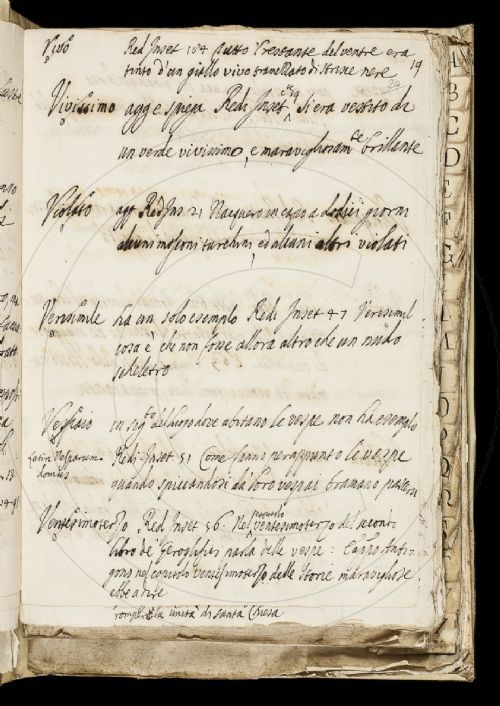 Vivo Red Inset 154 tutto il restante del ventre era
tinto d'un giallo vivo tramezzato di strisce nere
19
24
Vivissimo agg e spiega Redi Inset c 19 Si era vestito di
un verde vivissimo, e maravigliosam.te brillante
Violato agg Red Ins 21 Nacquero in capo a dodici giorni
alcuni mosconi turchini, ed alcuni altri violati
Verisimile ha un solo esemplo Redi Inset 47 Verisimil
cosa è, che non fosse allora altro che un nudo
scheletro
Vespaio in sig.to del luogo dove abitano le vespe non ha esemplo
Latin Vesparum
domus
Redi Inset 51 Come fanno per appunto le vespe
quando spiccandosi da loro vespai bramano
Ventesimoterzo Red Inset 56 Nel ventesimoterzo del secondo
libro de Geroglifici parla delle vespe: Cariso Anti-
gono nel capitolo ventesimoterzo delle Storie maravigliose
ebbe a dire
rompere la unità di santa Chiesa
A
B
C
D
E
F
G
L